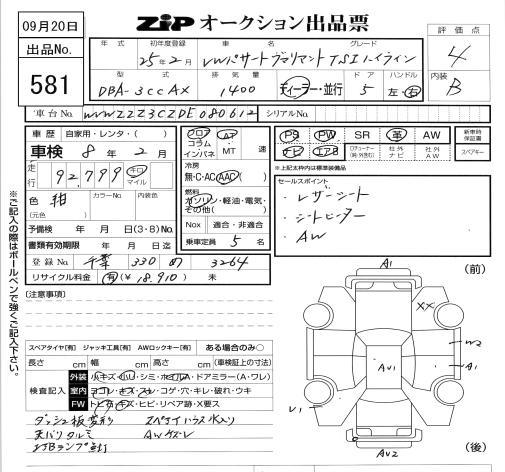 09月20日
ZIP オークション出品票
出品No.
581
評価点
4
内装
B
年式 初年度登録 車名 グレード
25年2月 VWパサートヴァリアント TSIハイライン
型式 排気量 ドア ハンドル
DBA-3CCAX 1400 ディーラー・並行 5 左・右
車台No. WVWZZZ3CZDE080612 シリアルNo.
車歴 自家用・レンタ( )
車検 8年2月
走行 92,799 キロ マイル
色 紺 カラーNo. 内装色
(元色)
予備検 年 月 日(3・8)No.
書類有効期限 年 月 日迄
登録No. 千葉 330 め 3264
リサイクル料金 有(¥18,910) 未
フロア AT
コラム
インパネ MT 速
冷房
無・C・AC・AAC
燃料
ガソリン・軽油・電気・
その他( )
Nox 適合・非適合
乗車定員 5 名
PS PW SR 革 AW
ナビ エアB 1オーナー 社外ナビ 社外AW
新車時保証書
スペアキー
※上記太枠内は標準装備品
セールスポイント
・レザーシート
・シートヒーター
・AW
※ご記入の際はボールペンで強くご記入下さい。
[注意事項]
スペアタイヤ[有] ジャッキ工具[有] AWロックキー[有] ある場合のみ○
長さ cm 幅 cm 高さ cm (車検証上の寸法)
検査記入
外装 小キズ・小U・シミ・ホイルA・ドアミラー(A・ワレ)
室内 ヨゴレ・キズ・スレ・コゲ・穴・キレ・破れ・ウキ
FW トビ石・キズ・ヒビ・リペア跡・X要ス
ダッシュ板変形 スペアタイヤハウス水入り
天バリタルミ AWケズレ
エアBランプ点灯
(前)
A1
XX
W2
A1
AU1
U1
AU2
(後)